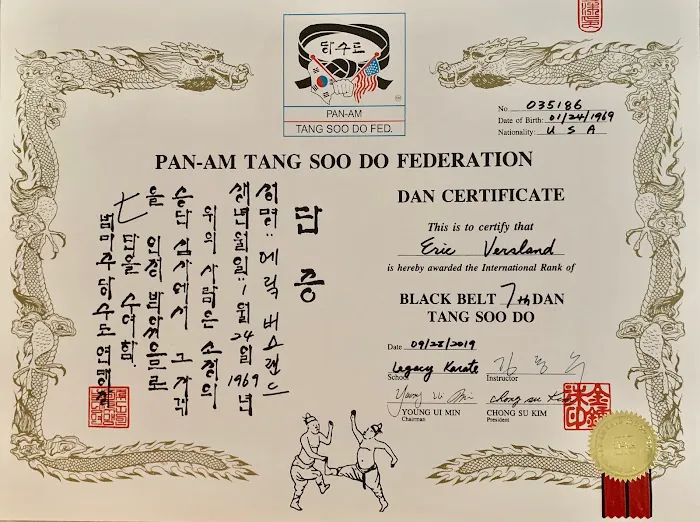 당수도
PAN-AM
TANG SOO DO FED.
No. 035186
Date of Birth: 01/24/1969
Nationality: U S A
PAN-AM TANG SOO DO FEDERATION
단증
성명: 에릭 버스랜드
생년월일: 1월 24일 1969년
위의 사람은 소정의
승단 심사에서 그 자격
을 인정 받았으므로
七 단을 수여함.
범미주당수도연맹
DAN CERTIFICATE
This is to certify that
Eric Versland
is hereby awarded the International Rank of
BLACK BELT 7th DAN
TANG SOO DO
Date 09/28/2019
Legacy Karate
School
Instructor
Young Ui Min
Chong Su Kim
YOUNG UI MIN
Chairman
CHONG SU KIM
President